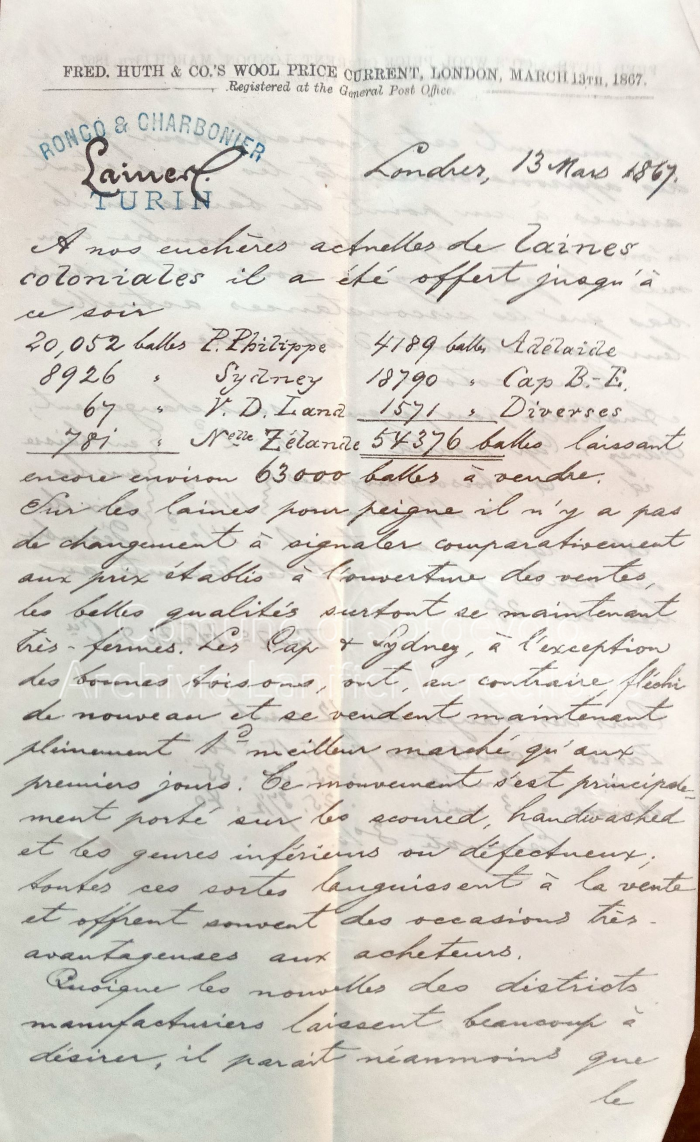 FRED. HUTH & CO.'S WOOL PRICE CURRENT, LONDON, MARCH 13TH, 1867.
Registered at the General Post Office.
RONCO & CHARBONIER
Laines
TURIN
Londres, 13 Mars 1867.
A nos enchères actuelles de laines
coloniales il a été offert jusqu'à
ce soir
20,052 balles P. Philippe 4189 balles Adélaide
8926 " Sydney 18790 " Cap B.-E.
67 " V. D. Land 1571 " Diverses
781 " Nelle Zélande 54376 balles laissant
encore environ 63000 balles à vendre.
Sur les laines pour peigne il n'y a pas
de changement à signaler comparativement
aux prix établis à l'ouverture des ventes,
les belles qualités surtout se maintenant
très-fermes. Les Cap & Sydney, à l'exception
des bonnes toisons, ont, au contraire fléchi
de nouveau et se vendent maintenant
pleinement 1d meilleur marché qu'aux
premiers jours. Ce mouvement s'est principale-
ment porté sur les scoured, handwashed
et les genres inférieurs ou défectueux;
toutes ces sortes languissent à la vente
et offrent souvent des occasions très-
avantageuses aux acheteurs.
Quoique les nouvelles des districts
manufacturiers laissent beaucoup à
désirer, il parait néanmoins que
le